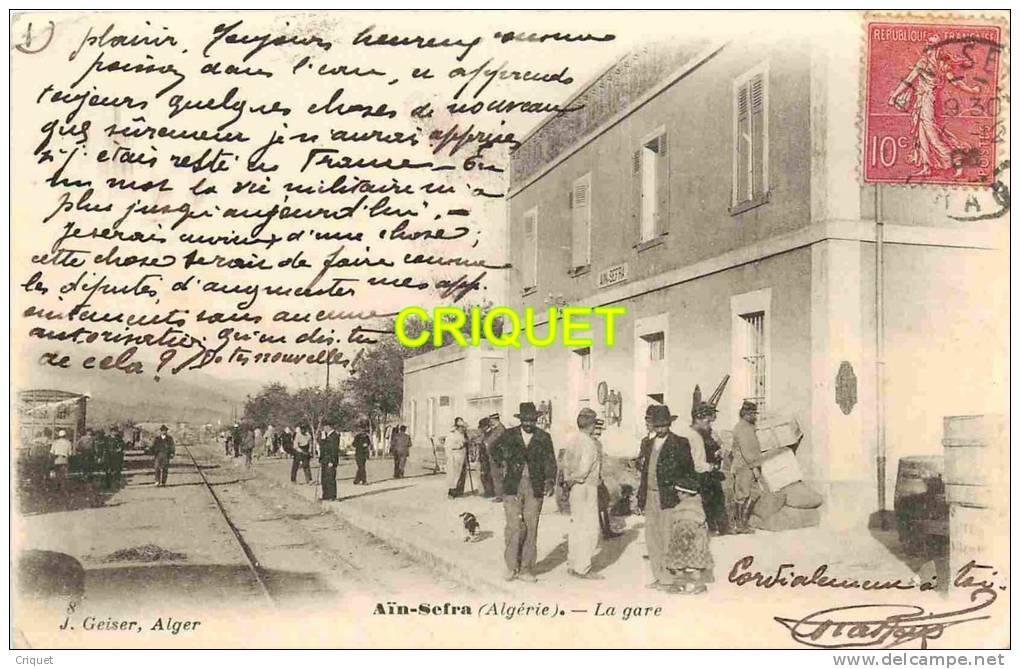 1
plaisir. Toujours heureux comme
poisson dans l'eau, et apprends
toujours quelques choses de nouveau
que sûrement je n'aurai appris
si j'étais resté en France - En
un mot la vie militaire m'a
plu jusqu'aujourd'hui. -
Je serais curieux d'une chose;
cette chose serait de faire comme
les députés, d'augmenter mes app.
ointements sans aucune
autorisation. Qu'en dis-tu
de cela ? Des nouvelles!
REPUBLIQUE FRANÇAISE
10c
POSTES
AIN-SE
930
AIN-SEFRA
CRIQUET
Cordialement à toi
8
Aïn-Sefra (Algérie). — La gare
J. Geiser, Alger
Criquet
http://criquet.delcampe.net